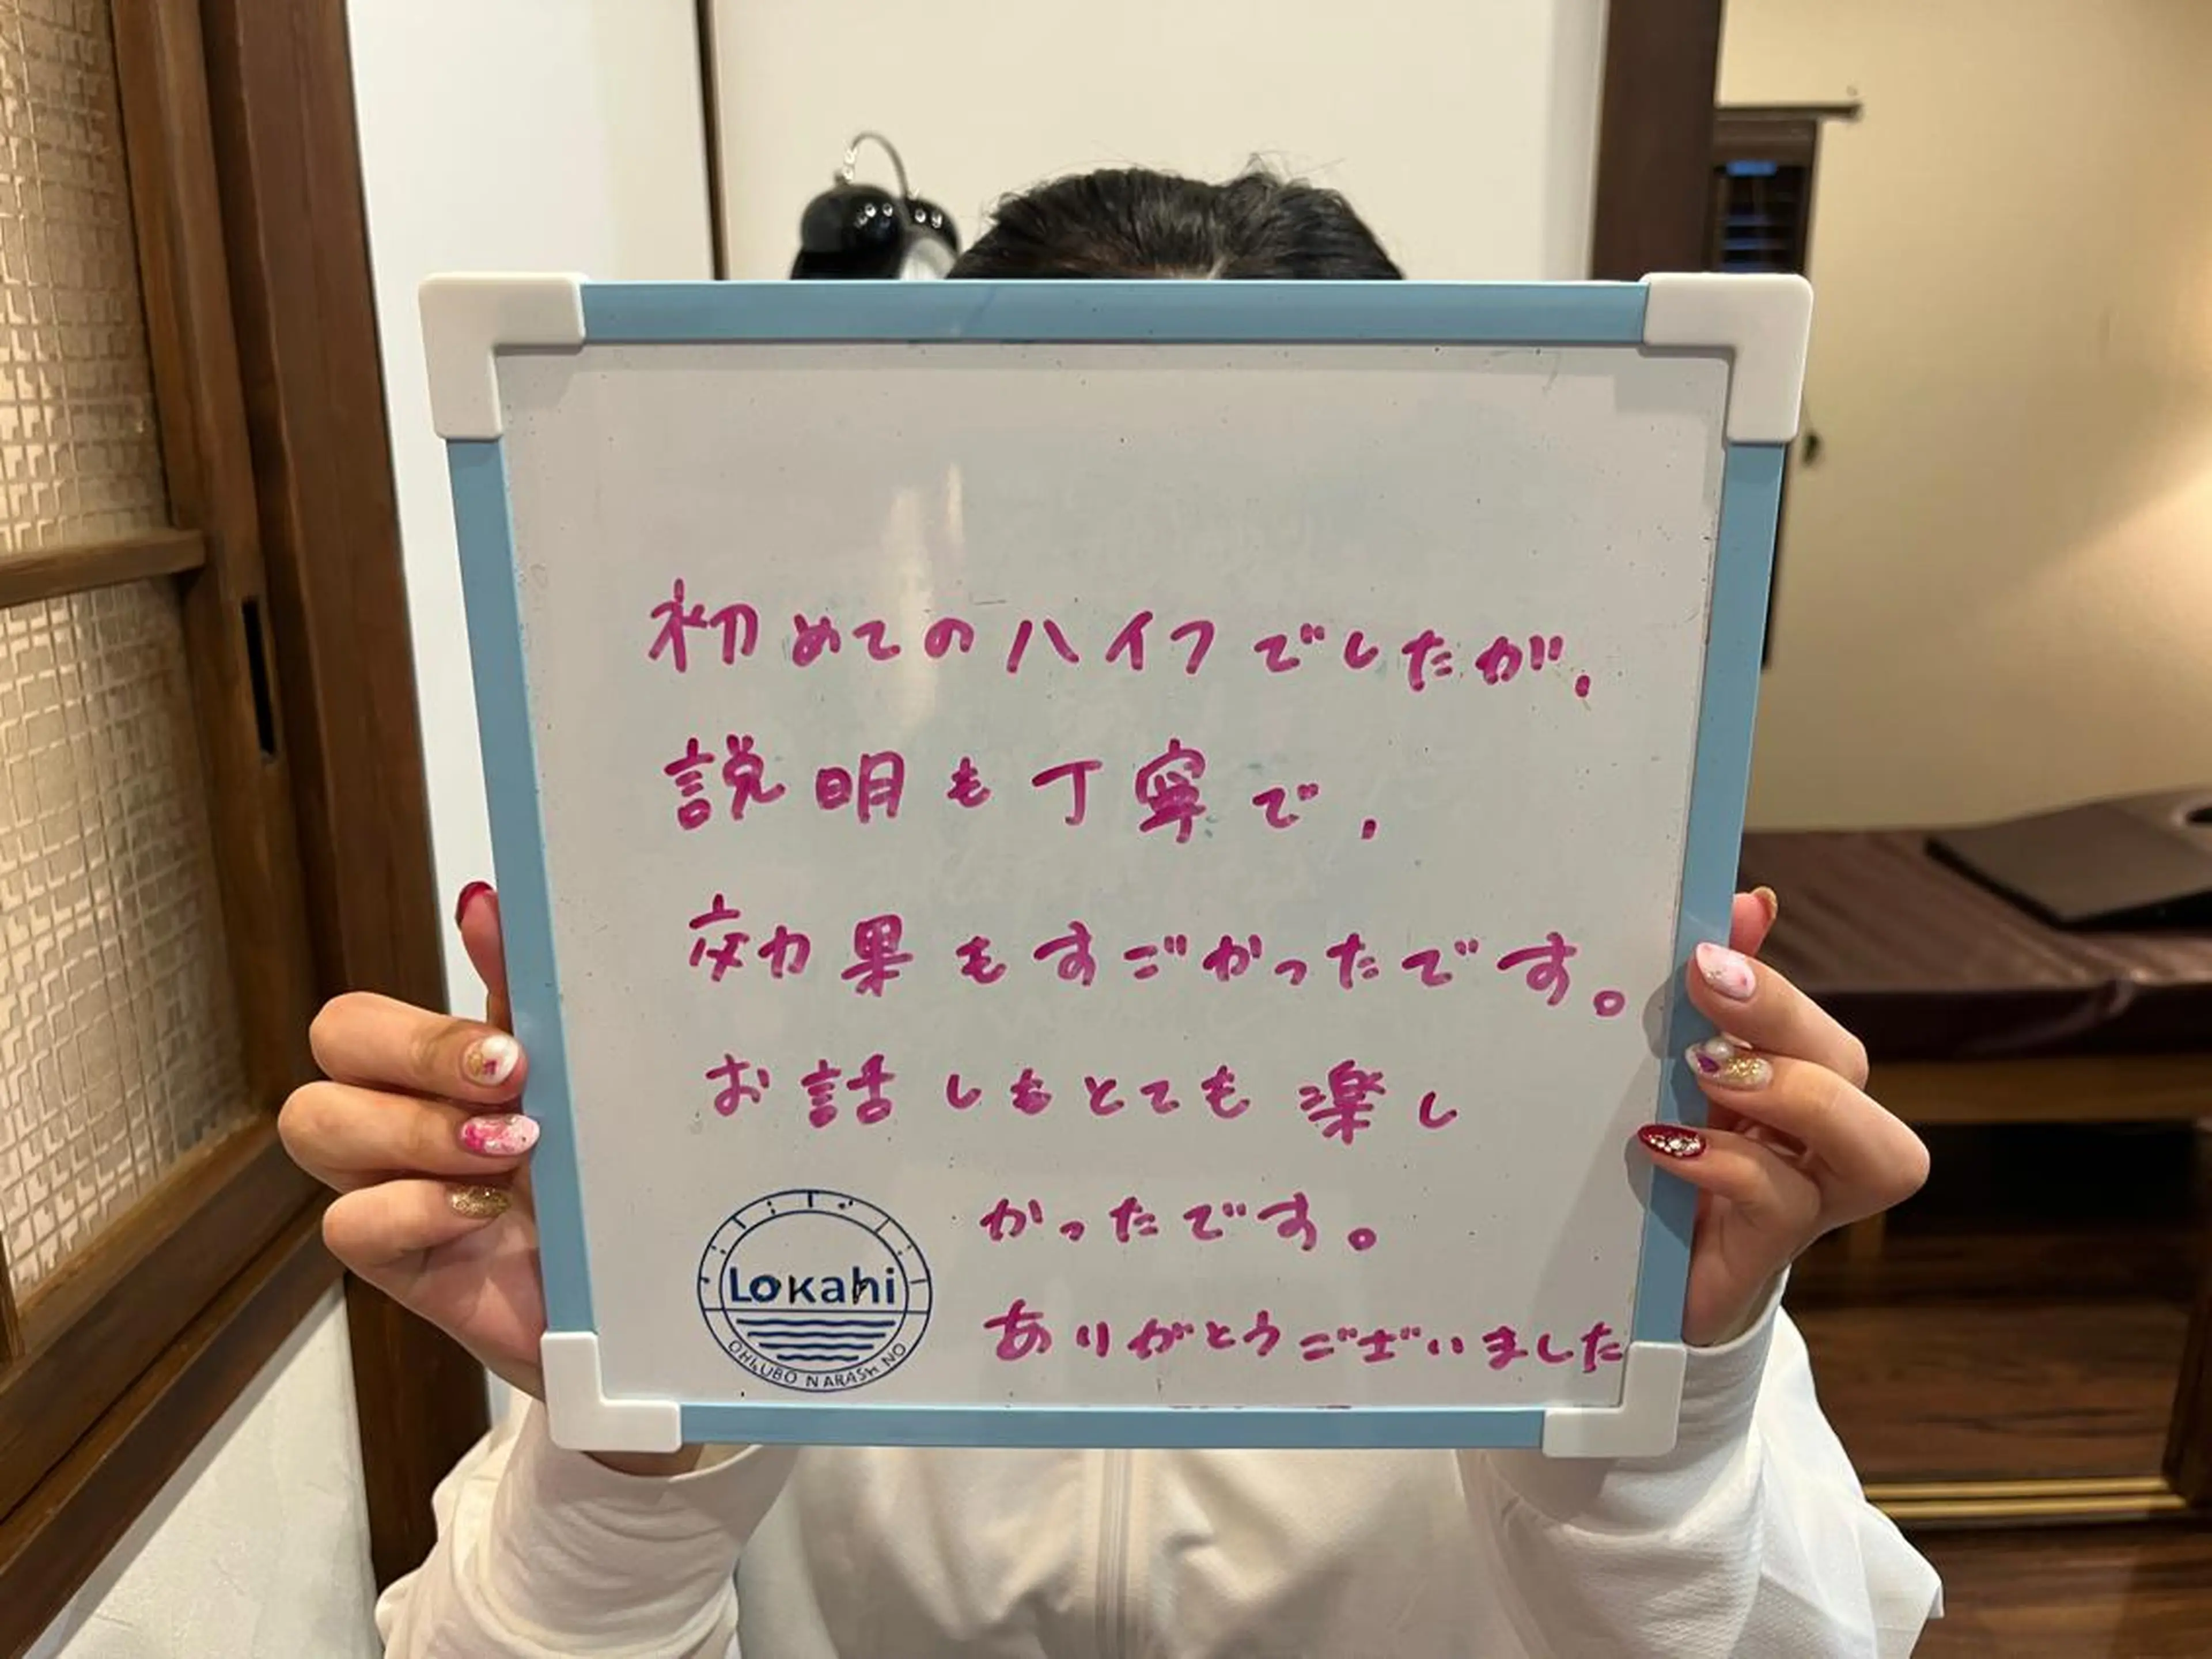 初めてのハイフでしたが、
説明も丁寧で、
効果もすごかったです。
お話しもとても楽し
かったです。
ありがとうございました
Lokahi
OHKUBO NARASHINO